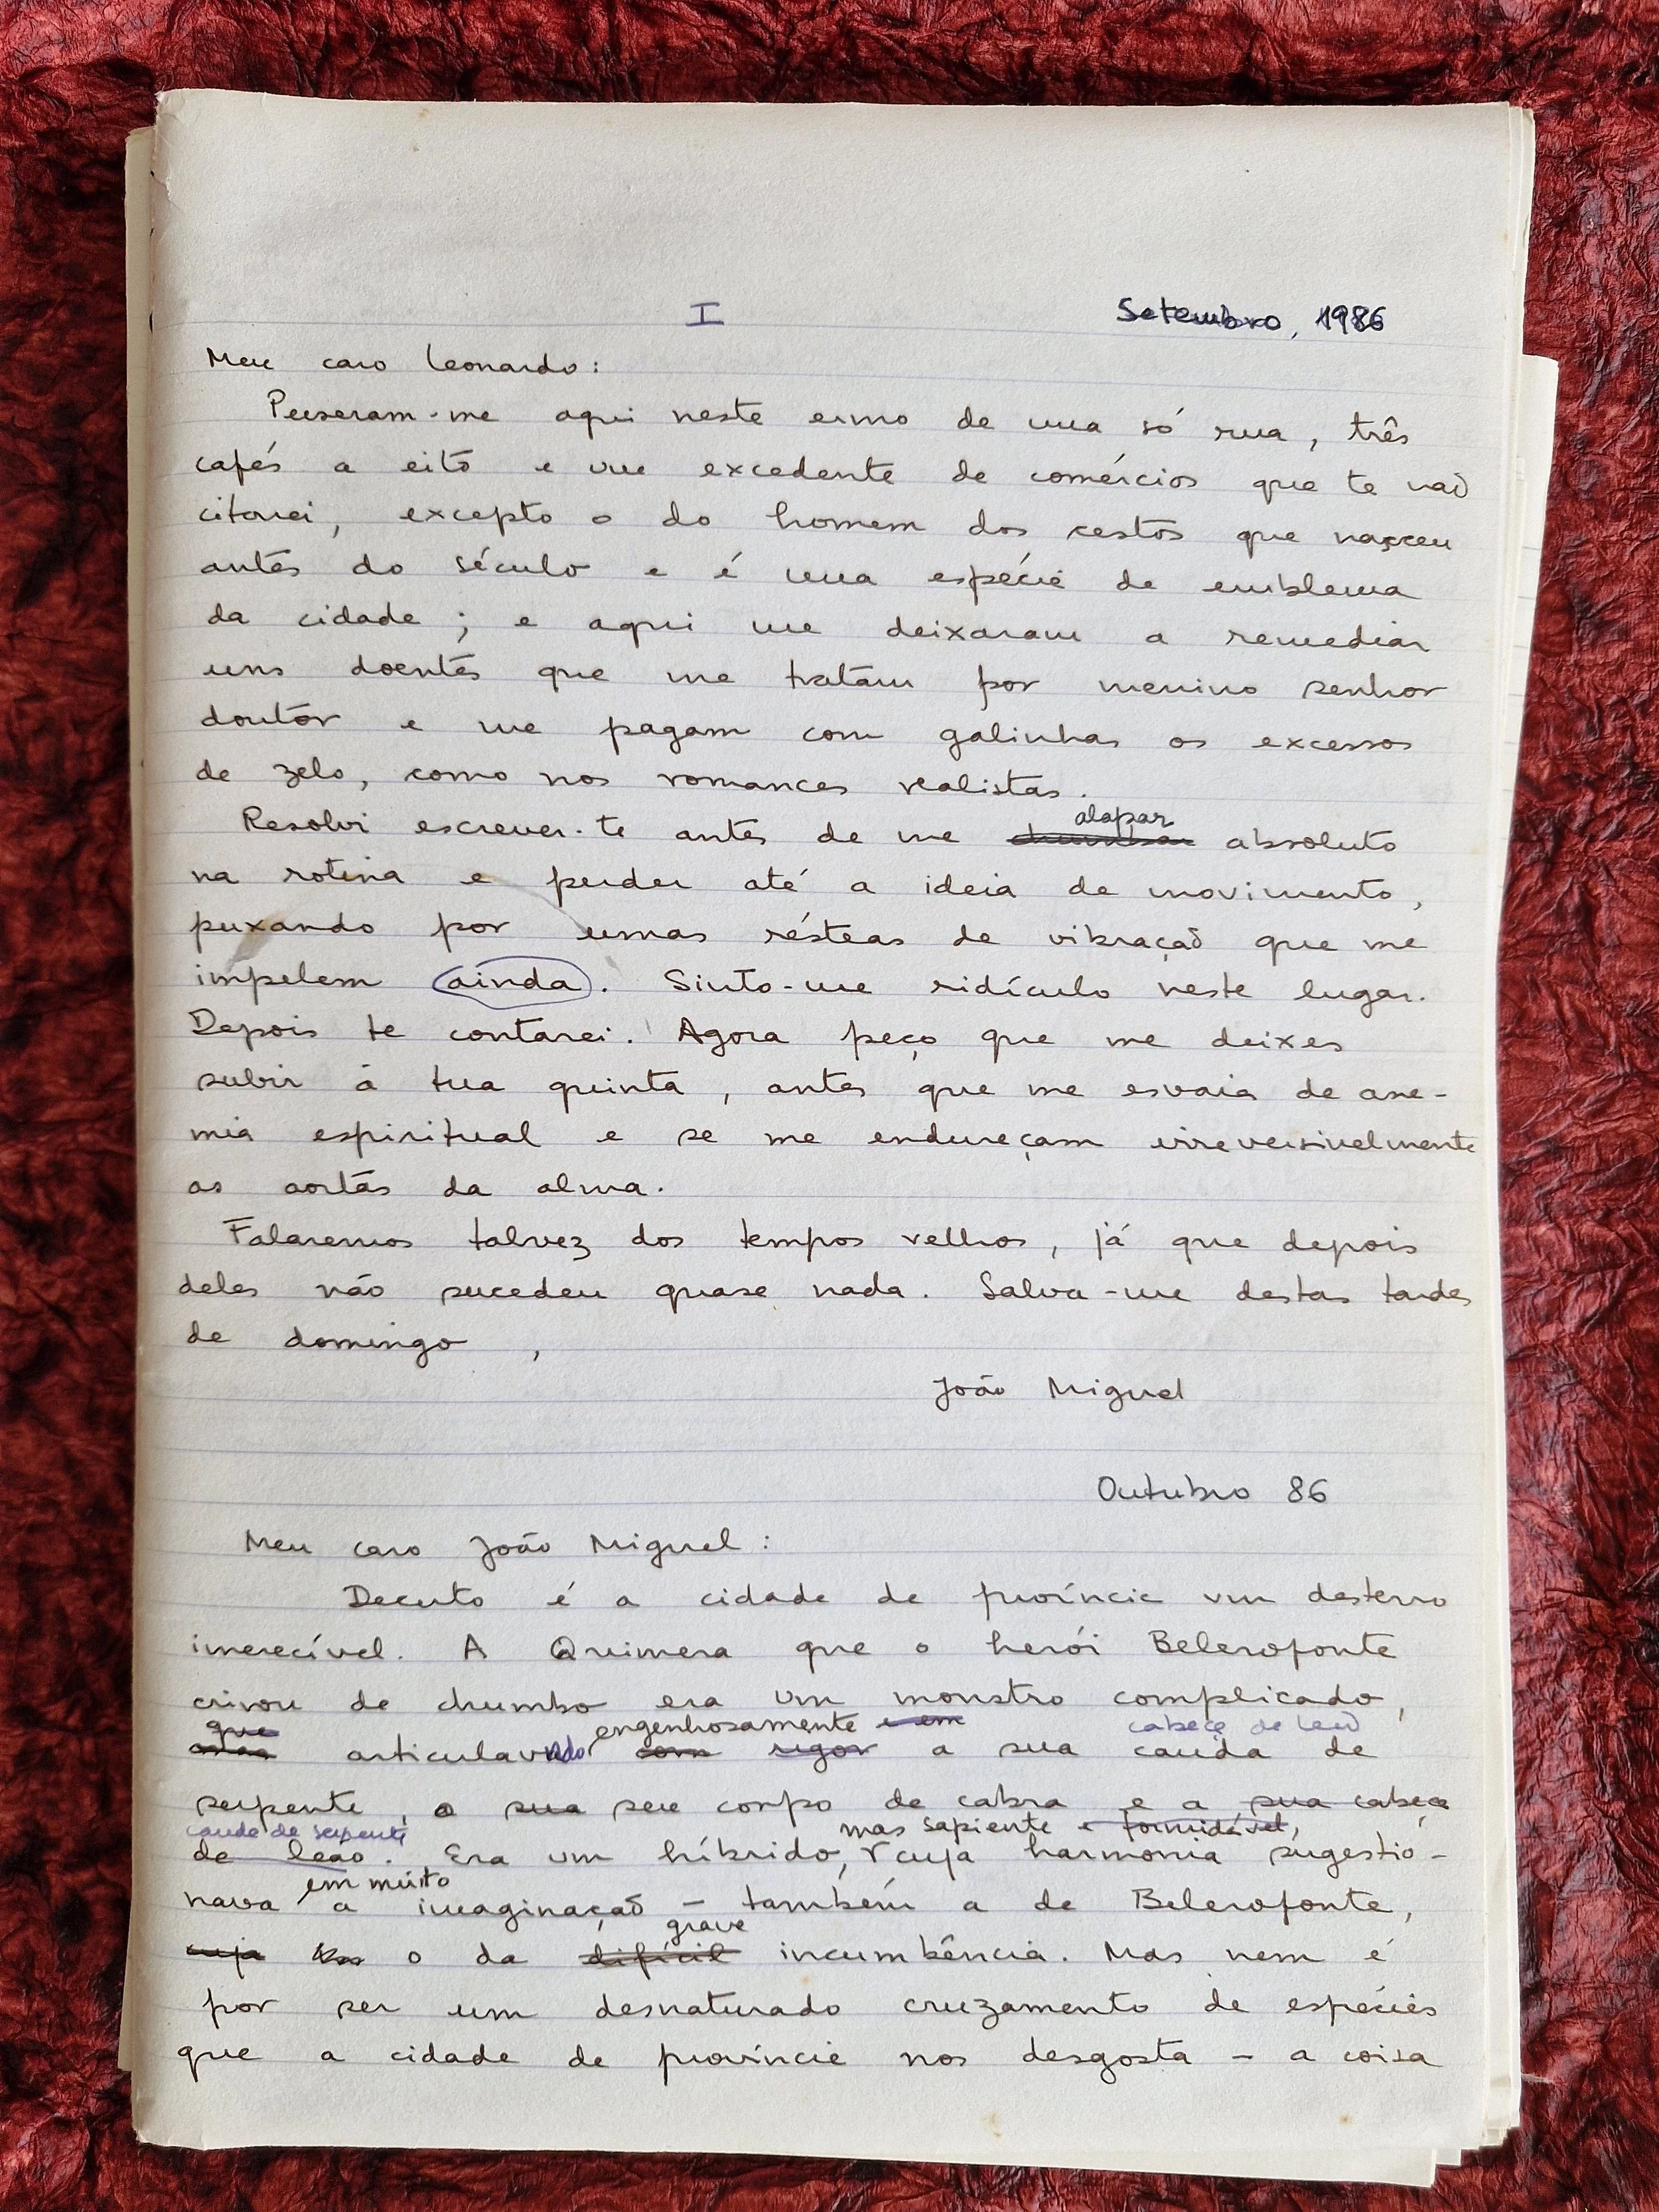 I
Setembro, 1986
Meu caro Leonardo:
Puseram-me aqui neste ermo de uma só rua, três
cafés a eito e um excedente de comércios que te não
citarei, excepto o do homem dos cestos que nasceu
antes do século e é uma espécie de emblema
da cidade; e aqui me deixaram a remediar
uns doentes que me tratam por menino senhor
doutor e me pagam com galinhas os excessos
de zelo, como nos romances realistas.
alapar
Resolvi escrever-te antes de me absoluto
na rotina e perder até a ideia de movimento,
puxando por umas résteas de vibração que me
impelem ainda. Sinto-me ridículo neste lugar.
Depois te contarei. Agora peço que me deixes
subir à tua quinta, antes que me esvaia de ane-
mia espiritual e se me endureçam irreversivelmente
as aortas da alma.
Falaremos talvez dos tempos velhos, já que depois
deles não sucedeu quase nada. Salva-me destas tardes
de domingo,
João Miguel
Outubro 86
Meu caro João Miguel:
Decerto é a cidade de província um desterro
imerecível. A Quimera que o herói Belerofonte
crivou de chumbo era um monstro complicado,
que engenhosamente e em cabeça de leão
articulando com rigor a sua cauda de
serpente, o sua seu corpo de cabra e a sua cabeça
cauda de serpente mas sapiente e formidável,
de leão. Era um híbrido, cuja harmonia sugestio-
em muito
nava a imaginação - também a de Belerofonte,
grave
cuja o da difícil incumbência. Mas nem é
por ser um desnaturado cruzamento de espécies
que a cidade de província nos desgosta - a coisa